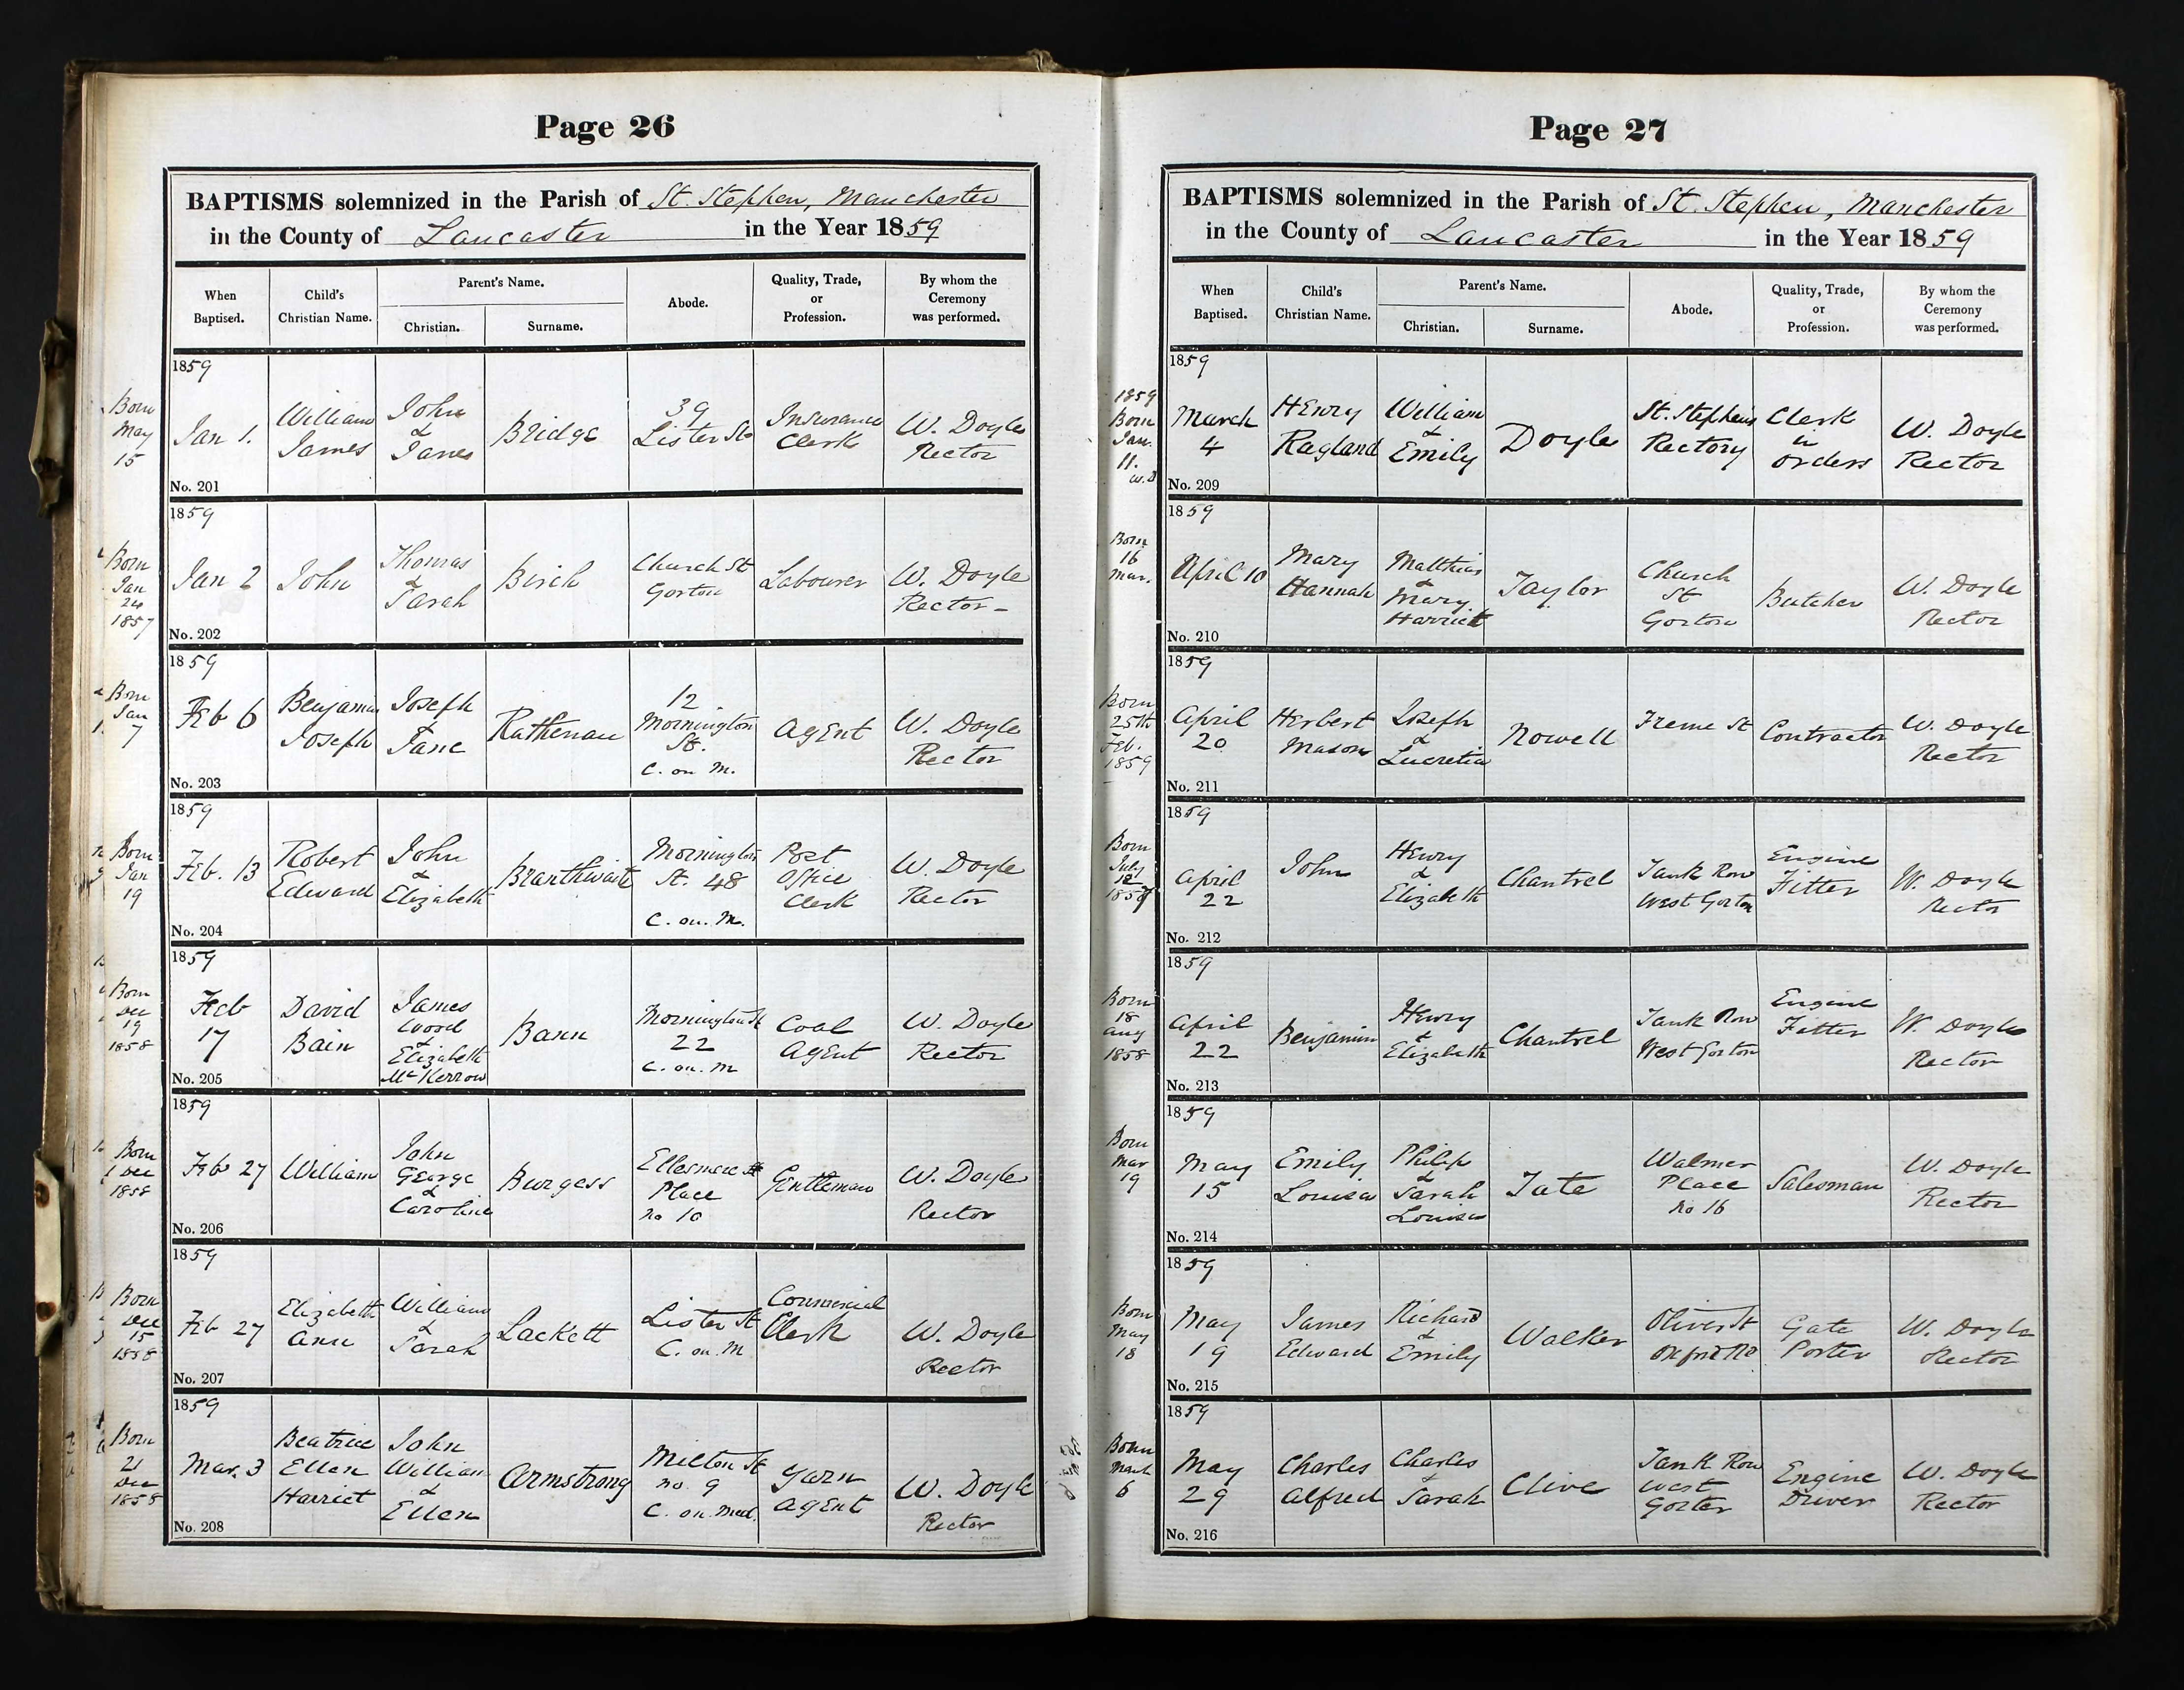 Page 26
BAPTISMS solemnized in the Parish of St. Stephen, Manchester
in the County of Lancaster in the Year 1859
When Baptised.
Child's Christian Name.
Parent's Name.
Christian.
Surname.
Abode.
Quality, Trade, or Profession.
By whom the Ceremony was performed.
1859
Born May 15
Jan 1.
William James
John & Janes
Bridge
39 Lister St
Insurance Clerk
W. Doyle Rector
No. 201
1859
Born Jan 24 1857
Jan 2
John
Thomas & Sarah
Birch
Church St Gorton
Labourer
W. Doyle Rector
No. 202
1859
Born Jan 7
Feb 6
Benjamin Joseph
Joseph & Jane
Rathenau
12 Mornington St. C. on M.
Agent
W. Doyle Rector
No. 203
1859
Born Jan 19
Feb. 13
Robert Edward
John & Elizabeth
Branthwaite
Mornington St. 48 C. on. M.
Post Office Clerk
W. Doyle Rector
No. 204
1859
Born Dec 19 1858
Feb 17
David Bain
James Wood & Elizabeth McKerrow
Bann
Mornington St 22 C. on. M
Coal Agent
W. Doyle Rector
No. 205
1859
Born 1 Dec 1858
Feb 27
William
John George & Caroline
Burgess
Ellesmere Place No 10
Gentleman
W. Doyle Rector
No. 206
1859
Born Dec 15 1858
Feb 27
Elizabeth Ann
William & Sarah
Lackett
Lister St C. on. M
Commercial Clerk
W. Doyle Rector
No. 207
1859
Born 21 Dec 1858
Mar. 3
Beatrice Ellen Harriet
John William & Ellen
Armstrong
Milton St no. 9 C. on. Med.
Yarn Agent
W. Doyle Rector
No. 208
Page 27
BAPTISMS solemnized in the Parish of St. Stephen, Manchester
in the County of Lancaster in the Year 1859
When Baptised.
Child's Christian Name.
Parent's Name.
Christian.
Surname.
Abode.
Quality, Trade, or Profession.
By whom the Ceremony was performed.
1859
1859 Born Jan. 11. W.D
March 4
Henry Ragland
William & Emily
Doyle
St. Stephens Rectory
Clerk in orders
W. Doyle Rector
No. 209
1859
Born 16 Mar.
April 10
Mary Hannah
Matthias & Mary Harriet
Taylor
Church St Gorton
Butcher
W. Doyle Rector
No. 210
1859
Born 25th Feb. 1859
April 20
Herbert Mason
Joseph & Lucretia
Nowell
Freme St
Contractor
W. Doyle Rector
No. 211
1859
Born July 12 1857
April 22
John
Henry & Elizabeth
Chantrel
Tank Row West Gorton
Engine Fitter
W. Doyle Rector
No. 212
1859
Born 18 Aug 1858
April 22
Benjamin
Henry & Elizabeth
Chantrel
Tank Row West Gorton
Engine Fitter
W. Doyle Rector
No. 213
1859
Born Mar 19
May 15
Emily Louisa
Philip & Sarah Louisa
Tate
Walmer Place No 16
Salesman
W. Doyle Rector
No. 214
1859
Born May 18
May 19
James Edward
Richard & Emily
Walker
Oliver St Oxford Rd
Gate Porter
W. Doyle Rector
No. 215
1859
Born March 6
May 29
Charles Alfred
Charles & Sarah
Clive
Tank Row West Gorton
Engine Driver
W. Doyle Rector
No. 216